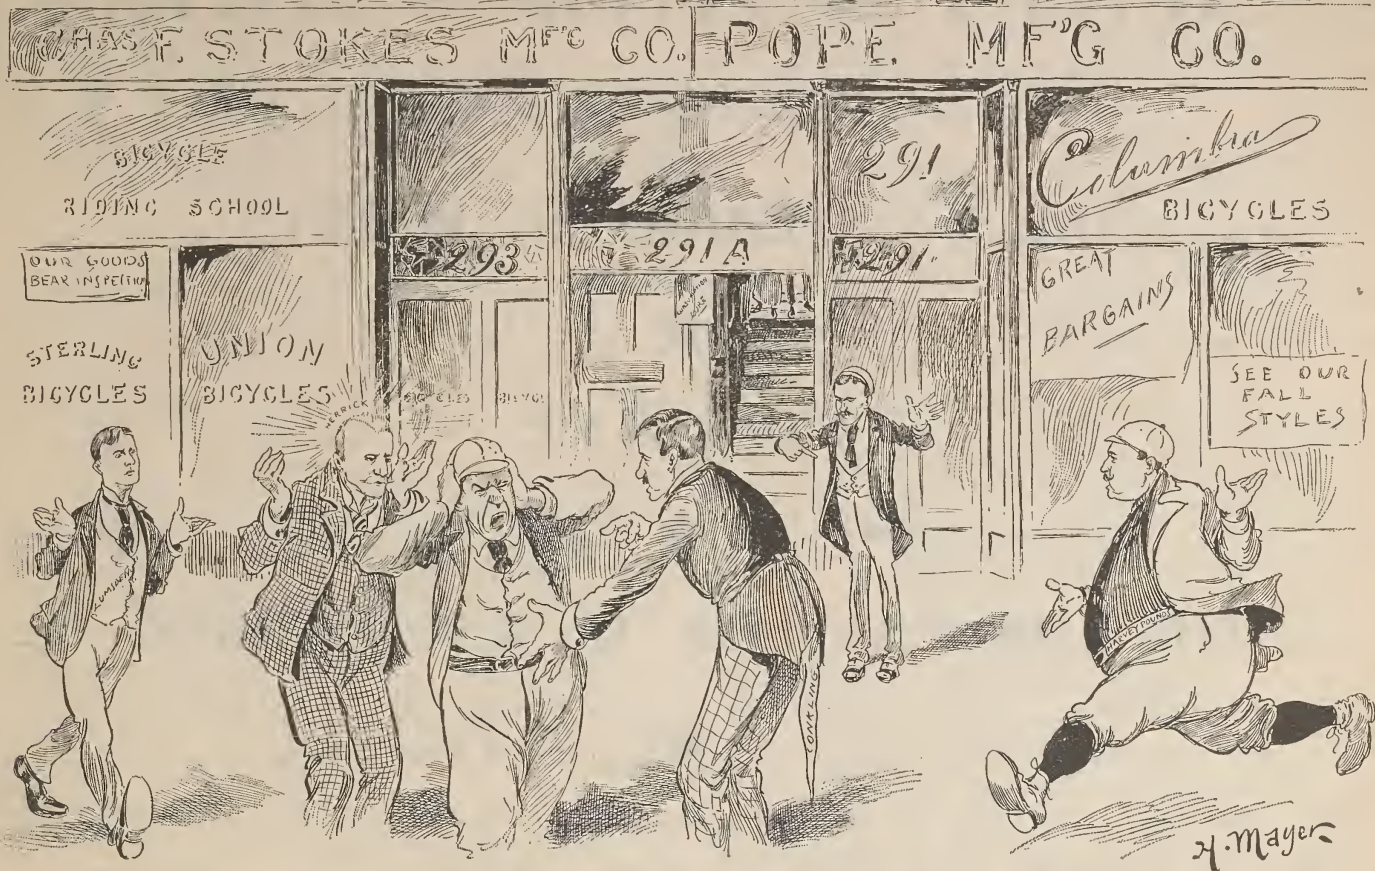 CHAS F. STOKES MF'G CO.
POPE MF'G CO.
BICYCLE
RIDING SCHOOL
OUR GOODS
BEAR INSPECTION
STERLING
BICYCLES
UNION
BICYCLES
293
291 A
291
291
Columbia
BICYCLES
GREAT
BARGAINS
SEE OUR
FALL
STYLES
BICYCLES
CONKLING
H. Mayer